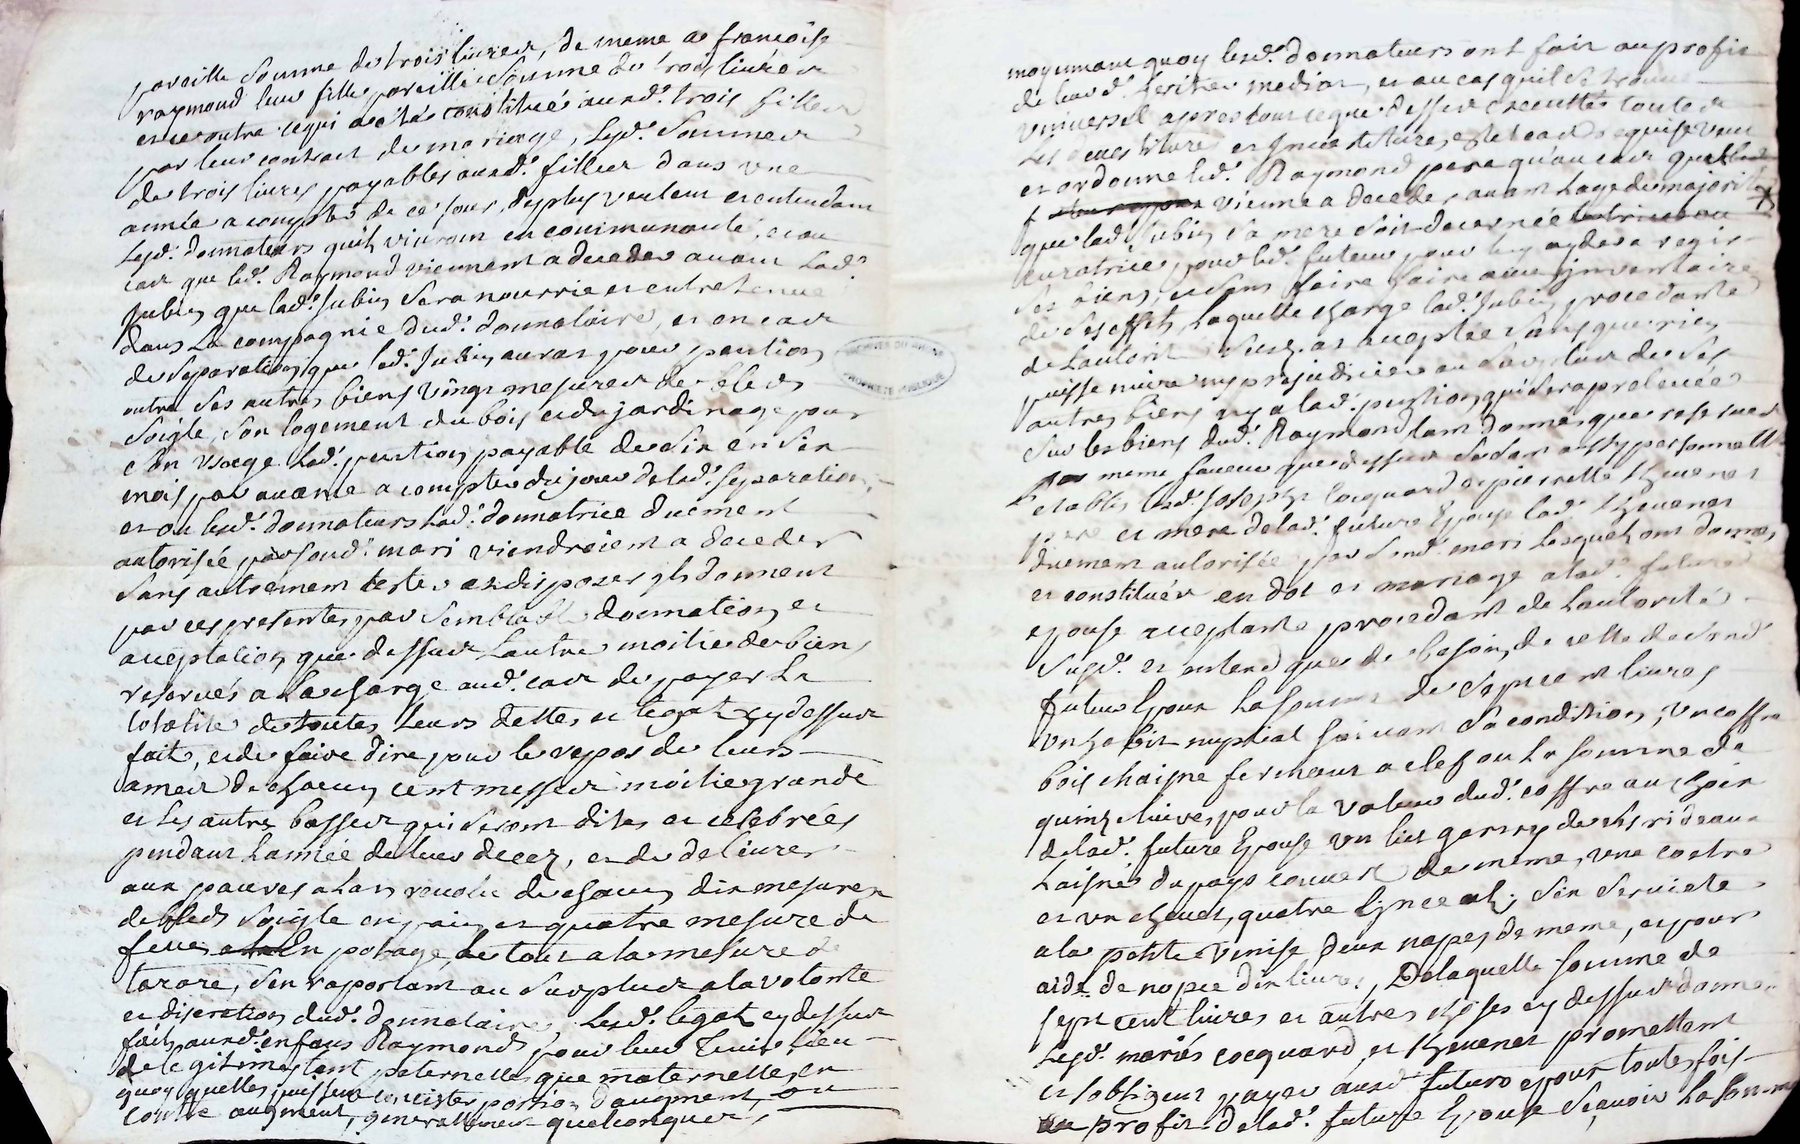 pareille Somme de trois livres, de meme a francoise
raymond leur fille pareille Somme de trois livres
et ce outre ce qui a eté constitué auxd. trois filles
par leur contract de mariage, Lesd. Sommes
de trois livres payables auxd. filles dans une
année a compter de ce jour, deplus veulent et entendent
Lesd. donnateurs qu'ils vivront en communauté, et au
cas que led. Raymond viennent a deceder avant Lad.
Jubin que lad. Jubin Sera nourrie et entretenue
dans La compagnie dud. donnataire, et en cas
de Separation que lad. Jubin auras pour pention
outre Ses autres biens vingt mesures de bleds
Soigle, Son logement du bois et du jardinage pour
Son usage Lad. pention payable de Six en Six
mois par avance a compter du jour de lad. Separation,
et ou lesd. donnateurs Lad. donnatrice duement
autorisée par Sond. mari viendroient a deceder
Sans autrement tester et disposer ils donnent
par ces presentes par Semblable donnation et
aceptation que dessus Lautre moitié des biens
reservés a La charge aud. cas de payer La
totalité de toutes Leurs dettes et legats cy dessus
fait, et de faire dire pour le repos de leurs
ames de chacun cent messes moitié grande
et les autres basses qui Seront dites et celebrées
pendant Lannée de leur decez, et de delivrer
aux pauvres a Lan revolu de chacun dix mesures
de bleds Soigle en pain et quatre mesure de
feves En potage, Le tout a la mesure de
tarare, Sen raportant au Surplus a la volonté
et discretion dud. donnataire, Lesd. legats cy dessus
faits auxd. enfans Raymond pour leur tenir Lieu
de legitime, tant paternelle que maternelle, en
quoy quelles puissent consister portion d'augment, ou
contre augment, generallement quelconques,
moyennant quoy lesd. donnateurs ont fait au profit
de leurd. heritier et au cas qu'il Se trouve
universel apres tout ce que dessus executtés toutes
Les et ce requise veut
et ordonne led. Raymond pere qu'au cas que
vienne a deceder avant Lage de majorité
que lad. Jubin Sa mere Soit decernée
curatrice pour led. futeur pour luy ayder a regir
Ses biens, et Sans faire faire aucun jnventaire
de Ses effets, Laquelle charge lad. Jubin procedante
de Lautorité Susd. a aceptée Sans que rien
puisse nuire ny prejudicier au de Ses
autres biens ny a lad. pention qui Sera prelevée
Sur les biens dud. Raymond tant donnés que reservés
meme faveur que dessus Se Sont aussy personnellt
etablis Led. Joseph Cocquard et pierrette thevenet
pere et mere de lad. future Epouse lad. thevenet
duement autorisée par Sond. mari Lesquels ont donnés
et constitués en dot et mariage a lad. future
epouse aceptante procedant de Lautorité
Susd. et entend que de besoin, de cette de Sond.
futeur Epoux La Somme de Sept cent livres
un habit nuptial Suivant Sa condition, un coffre
bois chaisne fermant a clef ou La Somme de
quinze livres pour la valeur dud. coffre au choix
de lad. future Epouse un lict garny de Ses rideaux
Laisnes du pays couvert de meme, une coetre
et un chevet, quatre Linceuls, Six Serviete
a la petite venise deux napes de meme, et pour
aide de nopce dix livres, De laquelle Somme de
Sept cent livres et autres choses cy dessus donnés
Lesd. mariés cocquard et thevenet promettent
et Sobligent payer auxd. futurs epoux toutes fois
au profit de lad. future Epouse Scavoir La Somme
ARCHIVES DU RHONE
PROPRIETE PUBLIQUE